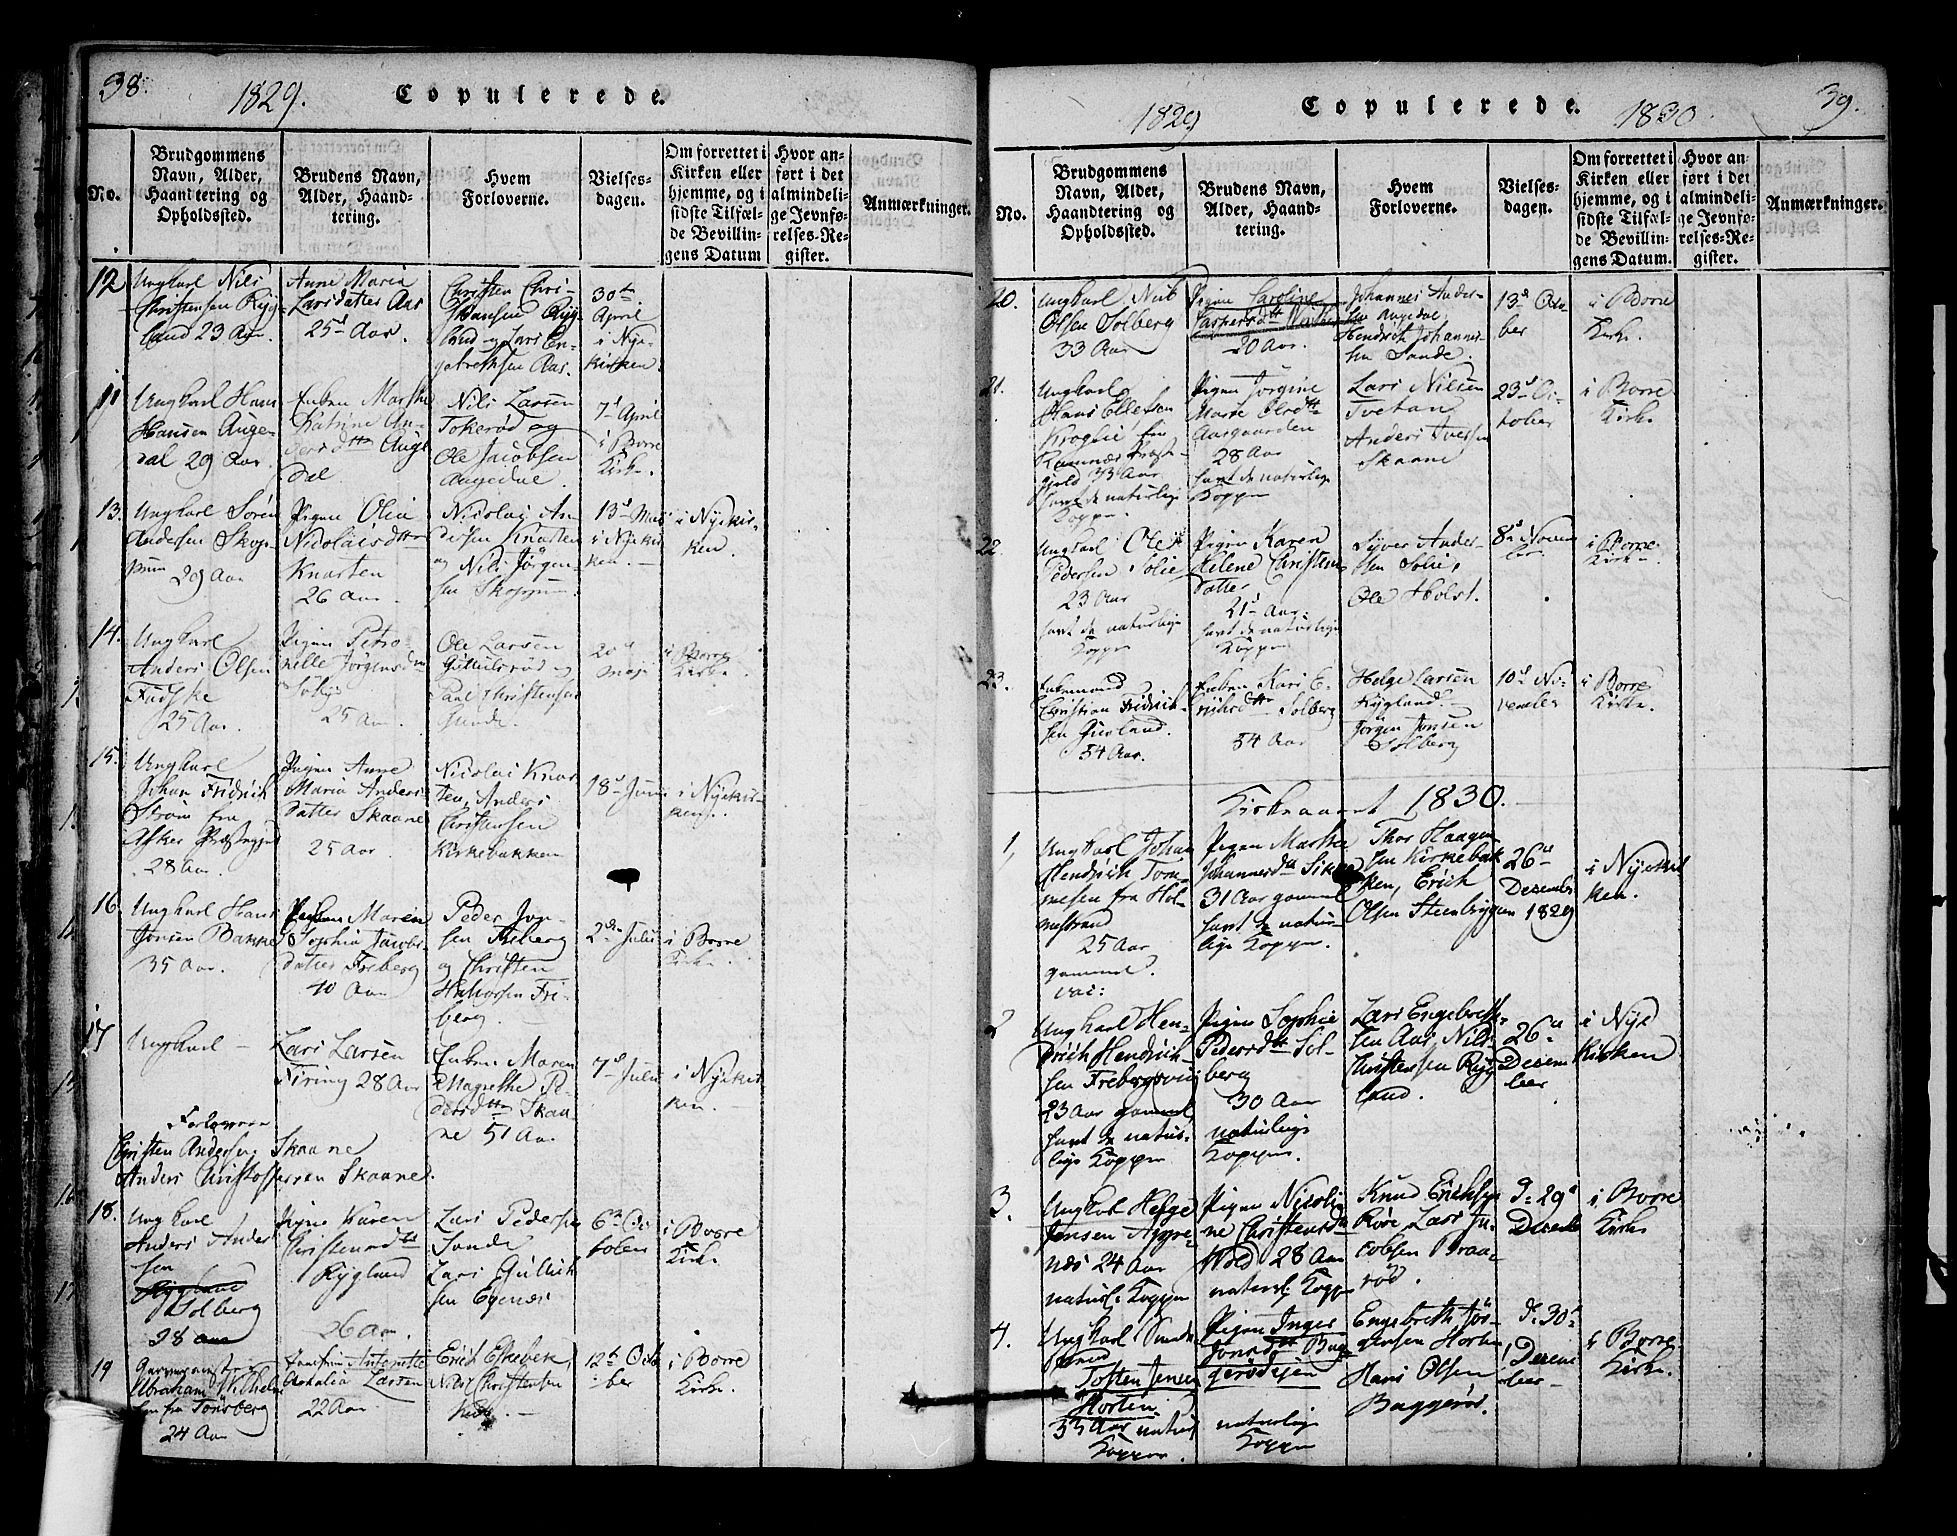 38.
1829.
Copulerede.
No.
Brudgommens
Navn, Alder,
Haandtering og
Opholdssted.
Brudens Navn,
Alder, Haand-
tering.
Hvem
Forloverne.
Vielses-
dagen.
Om forrettet i
Kirken eller
hjemme, og i
sidste Tilfæl-
de Bevillin-
gens Datum
Hvor an-
ført i det
almindeli-
ge Jevnfø-
relses-Re-
gister.
Anmærkninger.
12
Ungkarl Nils
Christensen Ryg-
land 23 Aar.
Anne Maria
Larsdatter Aas
25 Aar.
Christen Chri-
stensen Ryg-
land og Lars En-
gebrethsen Aas.
30te
April
i Nye-
kirken.
11
Ungkarl Hans
Hansen Auge-
dal 29 Aar.
Enken Marthe
Katrine An-
dersdttr Auge
dal
Nils Larsen
Tokerød og
Ole Jacobsen
Augedal.
7d April
i Borre
Kirke.
13.
Ungkarl Søren
Andersen Skop-
pum
29 Aar
Pigen Olia
Nicolaisdttr
Knarten
26 Aar.
Nicolai An
dersen Knarten
og Nils Jörgen-
sen Skoppum.
13d Mai
i Nyekir
ken.
i Nyekir-
ken.
14.
Ungkarl
Anders Olsen
Fudske
25 Aar.
Pigen Petro
nelle Jörgensd
25 Aar.
Ole Larsen
og
Paul Christensen
Sande.
20d
Maji
i Borre
Kirke.
15.
Ungkarl
Johan Fridrich
Strøm fra
Asker Præstegjeld
28 Aar.
Pigen Anne
Maria Anders
datter Skaane
25 Aar.
Nicolai Knar
ten, Anders
Christensen
Kirkebakken
18d Juni
i Nyekir-
ken.
16.
Ungkarl Hans
Jonsen Bakke
35 Aar.
Maren
Sophia Jacobs
datter Freberg
40 Aar
Peder Jon-
sen Freberg
og Christen
Halvorsen Fre-
berg.
2den Juli
i Borre
Kirke.
17
Ungkarl -
Lars Larsen
Firing 28 Aar
Enken Maren
Magrethe Pe
dersdttr Skaa-
ne 51 Aar.
7d Julii
i Nyekir
ken.
Forloverne
Christen Andersen Skaane
Anders Christoffersen Skaane.
18.
Ungkarl
Anders Ander
sen
Rygland
Solberg
28 Aar
Pigen Karen
Christensdttr
Rygland
26 Aar.
Lars Pedersen
Sande
Lars Gullich
sen Egenæs
6te Oc
tober
i Borre
Kirke
19
Abraham Wilhelm
sen fra Tønsberg
24 Aar
Jomfru Antonette
Larsen
22 Aar.
Erich Eskebek,
Nils Christensen
12te Octo
ber
i Borre
Kirke.
1829
Copulerede.
1830.
39.
No.
Brudgommens
Navn, Alder,
Haandtering og
Opholdssted.
Brudens Navn,
Alder, Haand-
tering.
Hvem
Forloverne.
Vielses-
dagen.
Om forrettet i
Kirken eller
hjemme, og i
sidste Tilfæl-
de Bevillin-
gens Datum.
Hvor an-
ført i det
almindeli-
ge Jevnfø-
relses-Re-
gister.
Anmærkninger.
20.
Ungkarl Nils
Olsen Solberg
33 Aar
Pigen Caroline
Caspersdttr
20 Aar.
Johannes Ander-
sen Augedal,
Hendrich Johannes-
sen Sande.
13d Octo
ber
i Borre
Kirke.
21.
Ungkarl
Hans Ellefsen
Kroglie fra
Ramnæs Præste-
gjeld 33 Aar
havt de naturlige
Kopper.
Pigen Jörgine
Marie Olsdttr
Aasgaarden
28 Aar
havt de naturlige
Kopper
Lars Nilsen
Tvetan
Anders Iversen
Skaane
23d Oc-
tober
i Borre
Kirke
22
Ungkarl Ole
Pedersen Solie
23 Aar
havt de naturlige
Kopper
Pigen Karen
Helene Christens
datter
21 Aar.
havt de naturlige
Kopper
Syver Ander-
sen Solie,
Ole Holst.
8d Novem
ber
i Borre
Kirke.
23.
Enkemand
Christian Fridrich-
sen
54 Aar.
Enken Kari E-
richsdttr Solberg
54 Aar
Helge Larsen
Rygland.
Jörgen Jonsen
Solberg
10d No-
vember
i Borre
Kirke.
Kirkeaaret 1830.
1,
Ungkarl Johan
Hendrich Tom-
mesen fra Hol-
mestrand
25 Aar
gammel.
vac:
Pigen Marthe
Johannesdtt
31 Aar gammel
havt de natur-
lige Kopper.
Thor Haagen
sen Kirkebak
ken, Erich
Olsen Steenbryggen
26de
Decembr
1829
i Nyekir
ken.
2
Ungkarl Hen-
drich Hendrich-
sen Frebergsvig
23 Aar gammel
havt de natur-
lige Kopper
Pigen Sophie
Pedersdttr Sol-
berg
30 Aar
naturlige
Kopper.
Lars Engebreth-
sen Aas, Nils
Christensen Ryg
land.
26de
Decem
ber
i Nye
Kirken
3.
Ungkarl Helge
Jensen Appe-
næs 24 Aar
naturl: Kopper
Pigen Nicoli
ne Christensdtt
Wold 28 Aar
naturl: Kopper
Knud Erichsen
Røre Lars Ja-
cobsen Braa-
rød.
D: 29d
Decemb
i Borre
Kirke
4.
Ungkarl
Tosten Jensen
Horten
33 Aar naturl
Kopper.
Pigen Inger
Jonsdtr Bag
gerødsjen
naturlige
Kopper
Engebreth Jör-
gensen Horten
Hans Olsen
Baggerød.
D: 30d
Decem
ber
i Borre
Kirke.